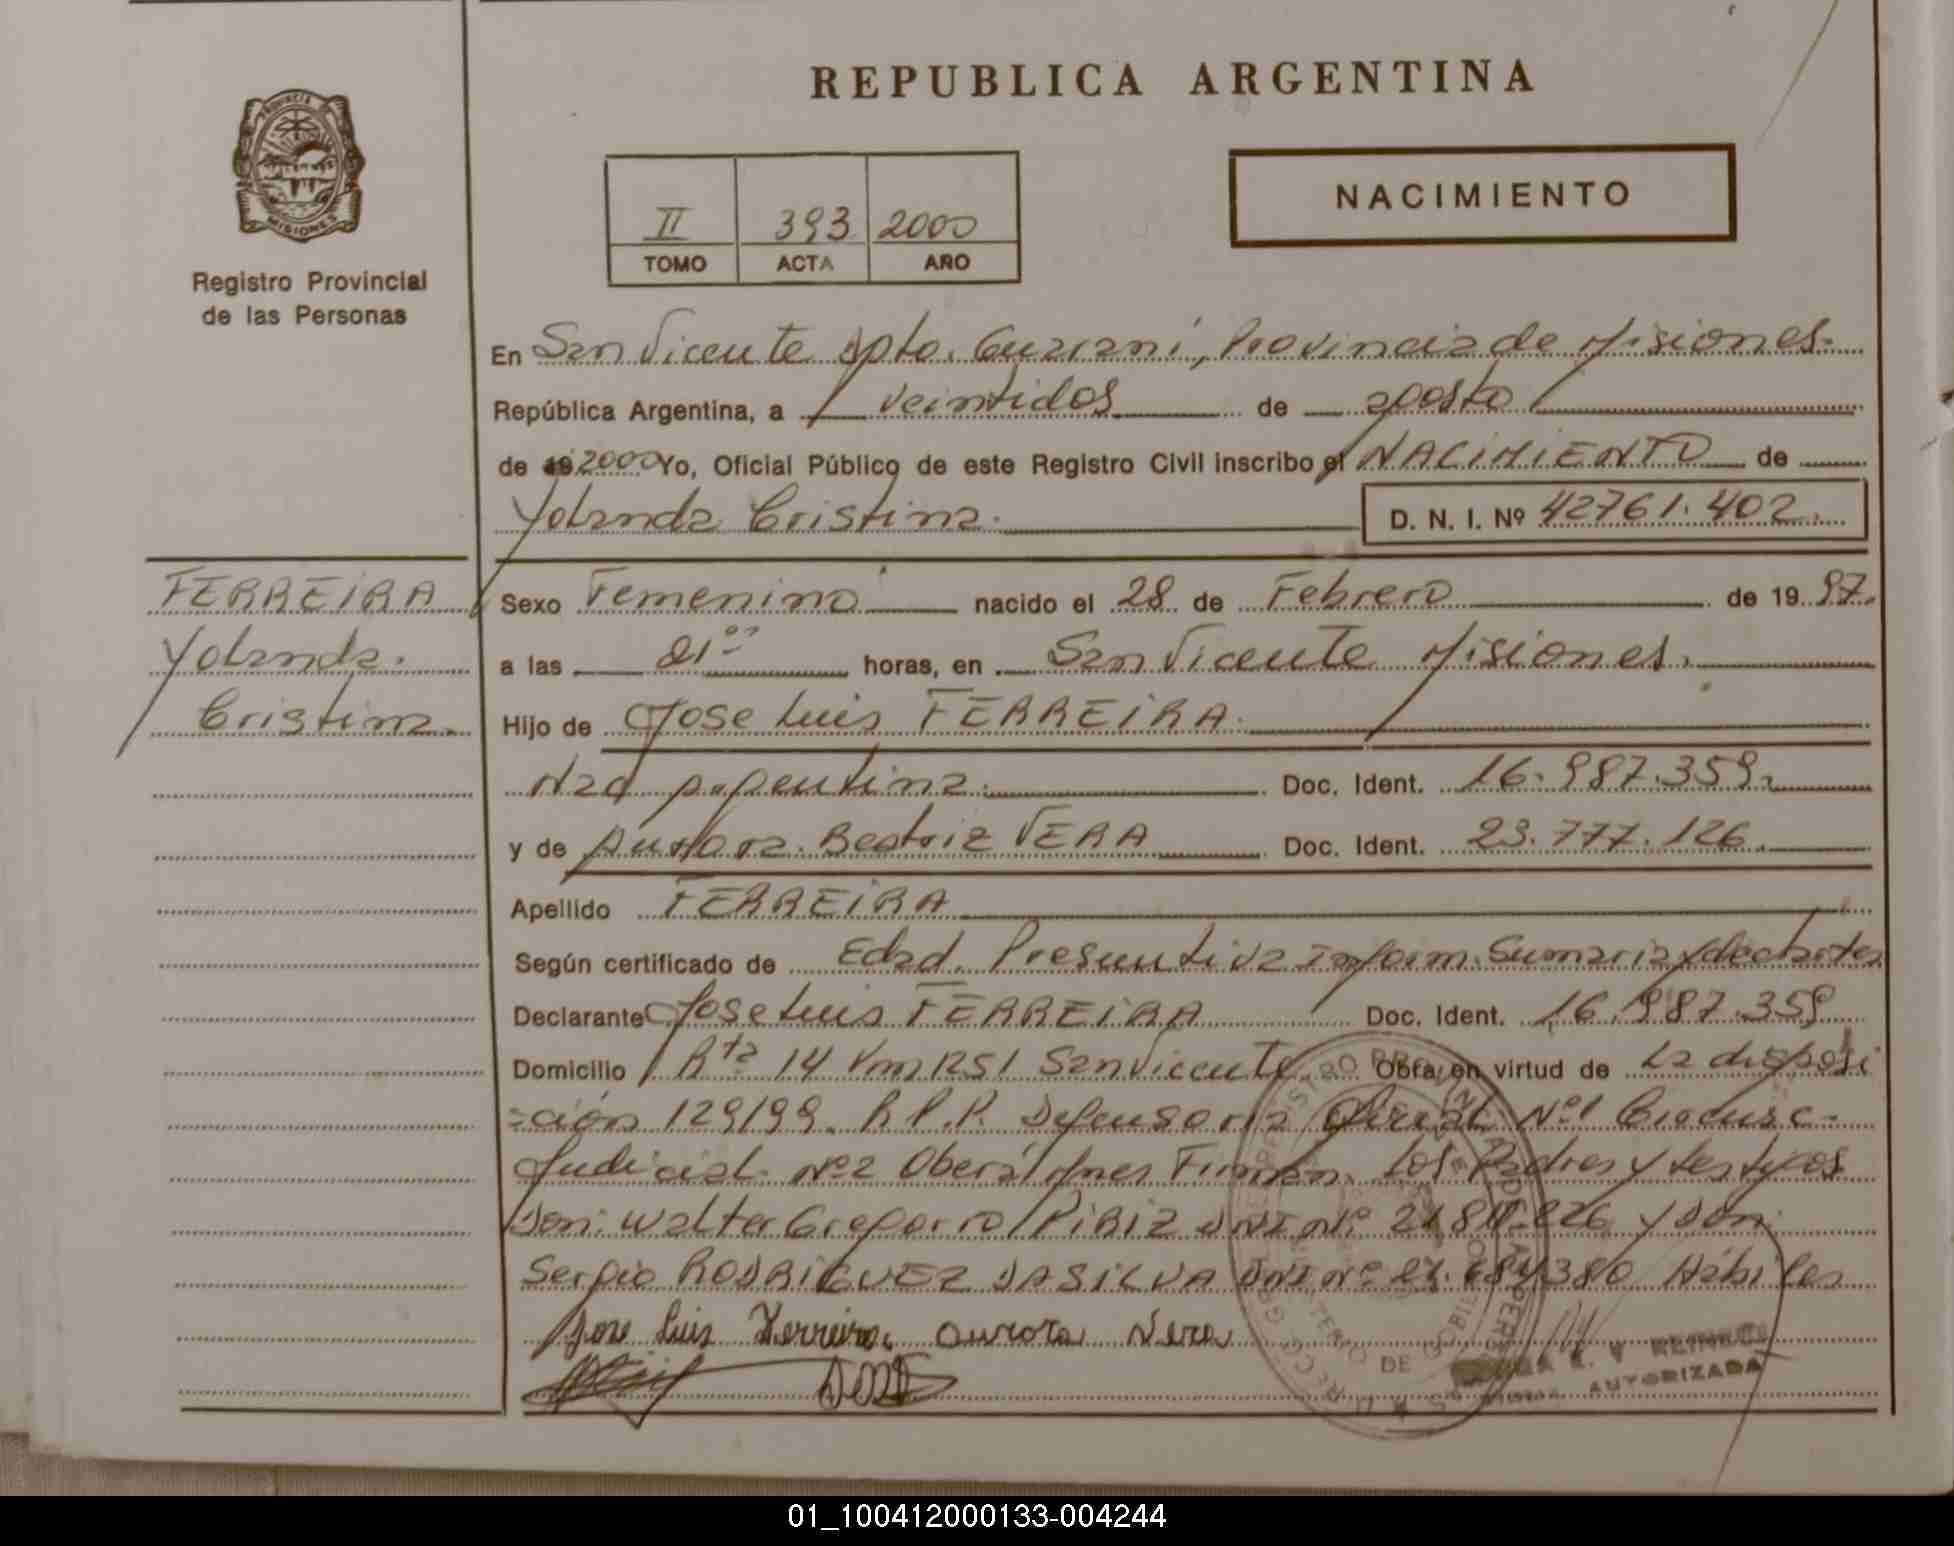 REPUBLICA ARGENTINA
PROVINCIA
MISIONES
Registro Provincial
de las Personas
II 393 2000
TOMO ACTA AÑO
NACIMIENTO
En San Vicente Dpto. Guaraní, Provincia de Misiones.
República Argentina, a veintidos de agosto
de 19 2000 Yo, Oficial Público de este Registro Civil inscribo el NACIMIENTO de
Yolanda Cristina. D. N. I. Nº 42761.402.
FERREIRA
Yolanda.
Cristina.
Sexo Femenino nacido el 28 de Febrero de 19 97.
a las 21 horas, en San Vicente Misiones.
Hijo de Jose Luis FERREIRA.
Nac Argentina. Doc. Ident. 16.987.359.
y de Aurora Beatriz VERA Doc. Ident. 23.777.126.
Apellido FERREIRA
Según certificado de Edad Presuntiva Inform. Sumaria y
Declarante Jose Luis FERREIRA Doc. Ident. 16.987.359
Domicilio Rta 14 Km 1251 San Vicente Obra en virtud de La disposi
=ción 129/99. R.P.P. Defensoria Oficial Nº1 Circunsc-
Judicial Nº2 Oberá Mnes Firman Los Padres y testigos
Don: Walter Gregorio PIRIZ DNI Nº y Don
Sergio RODRIGUEZ DASILVA DNI Nº Hábiles
Jose Luis Ferreira. aurora Vera
AUTORIZADA
01_100412000133-004244